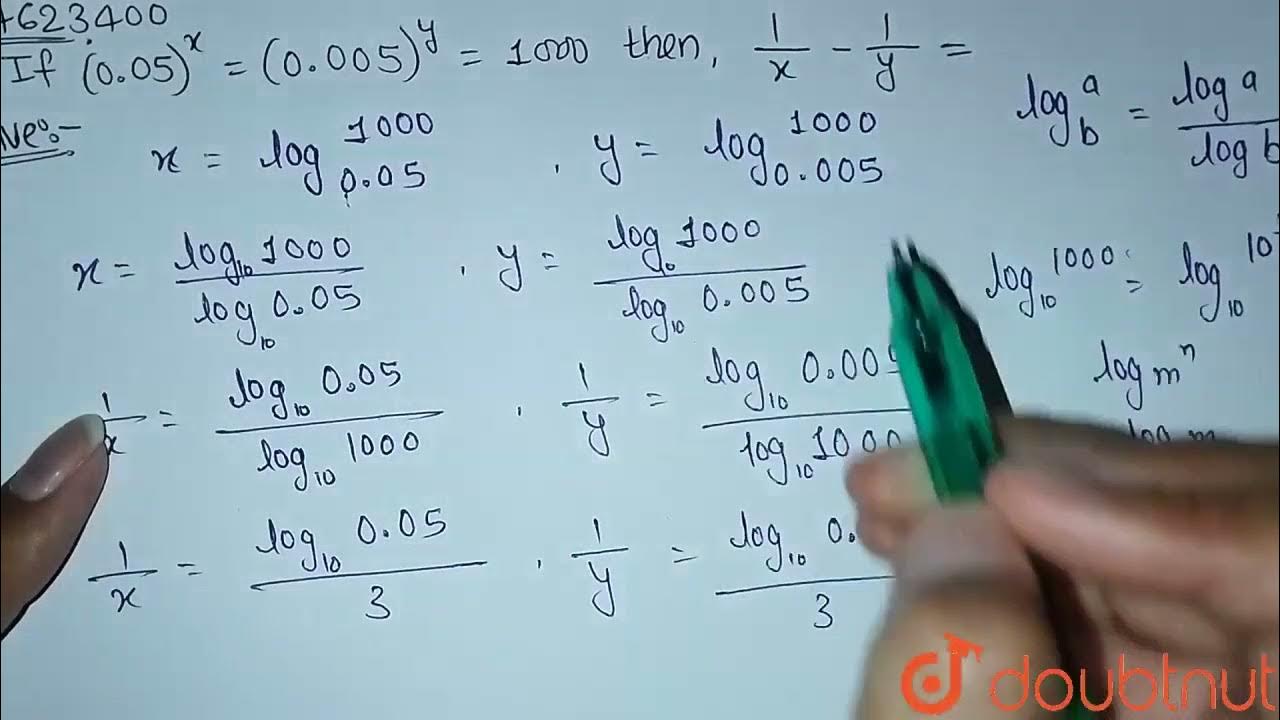 +623400
If (0.05)^x = (0.005)^y = 1000 then, 1/x - 1/y =
log_b^a = log a / log b
x = log_0.05^1000 , y = log_0.005^1000
x = log_10 1000 / log_10 0.05 , y = log_10 1000 / log_10 0.005
log_10^1000 = log_10^10
1/x = log_10 0.05 / log_10 1000 , 1/y = log_10 0.005 / log_10 1000
log m^n
1/x = log_10 0.05 / 3 , 1/y = log_10 0. / 3
doubtnut